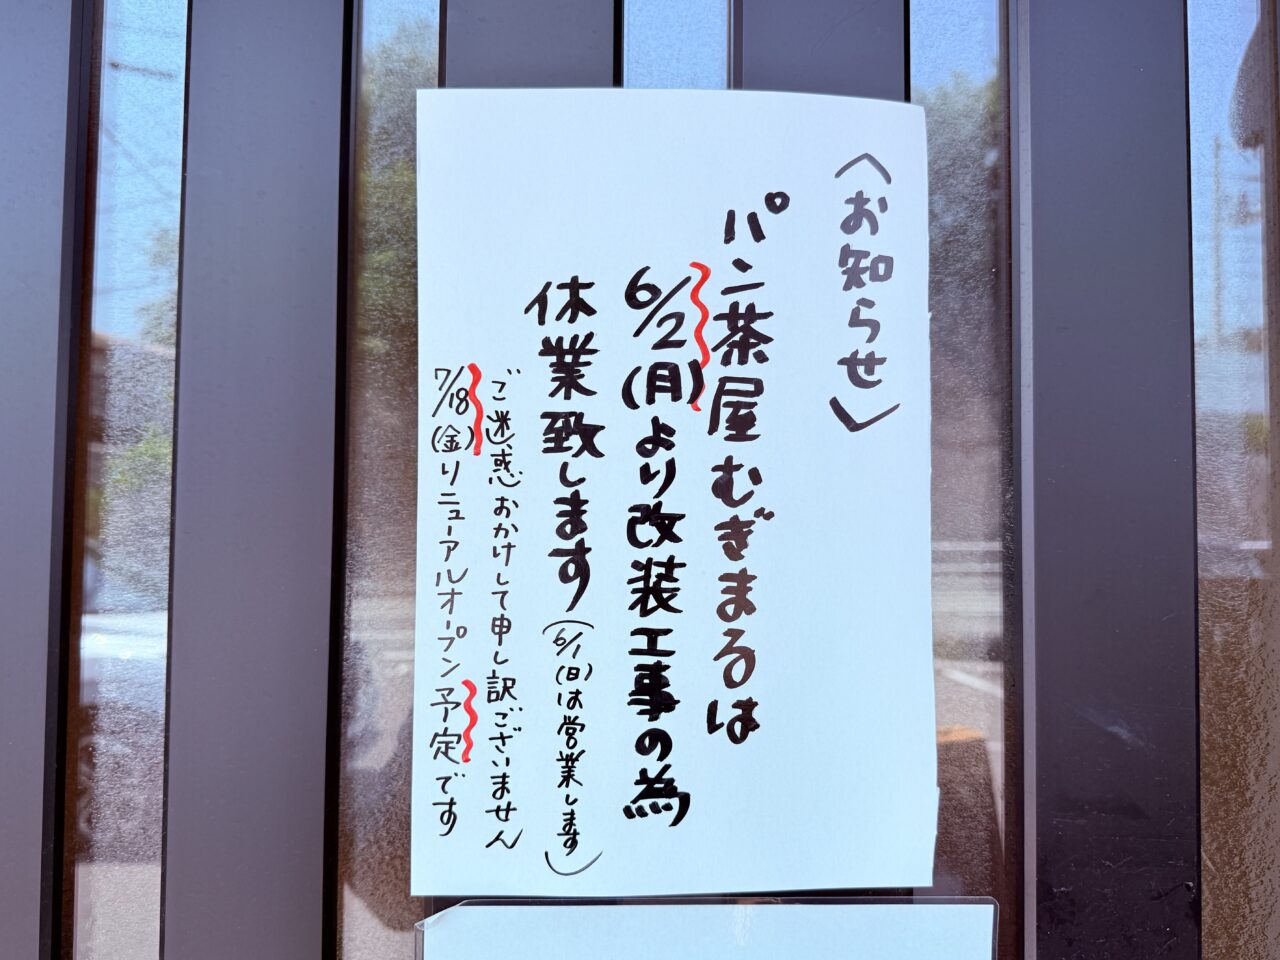 〈お知らせ〉
パン茶屋むぎまるは
6/2(月)より改装工事の為
休業致します(6/1(日)は営業します)
ご迷惑おかけして申し訳ございません
7/18(金)リニューアルオープン予定です